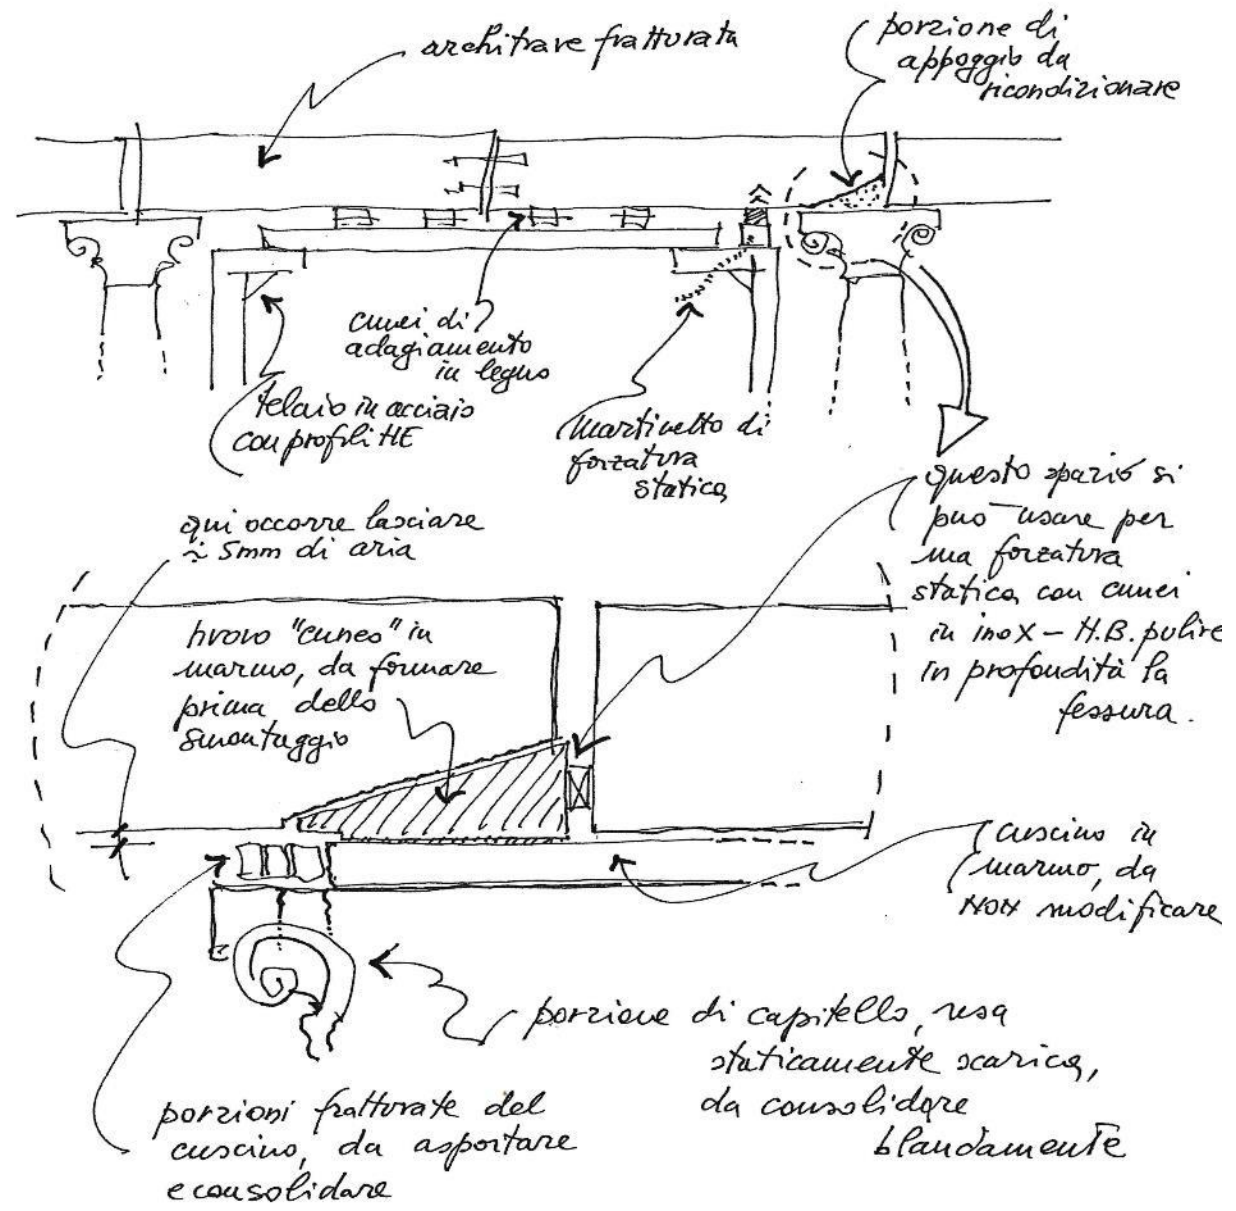 architrave fratturata
porzione di
appoggio da
ricondizionare
cunei di
adagiamento
in legno
telaio in acciaio
con profili HE
martinetto di
forzatura
statica
questo spazio si
può usare per
una forzatura
statica con cunei
in inox – H.B. pulire
in profondità la
fessura.
qui occorre lasciare
≃ 5mm di aria
nuovo "cuneo" in
marmo, da formare
prima dello
smontaggio
cuscino in
marmo, da
NON modificare
porzione di capitello, resa
staticamente scarica,
da consolidare
blandamente
porzioni fratturate del
cuscino, da asportare
e consolidare